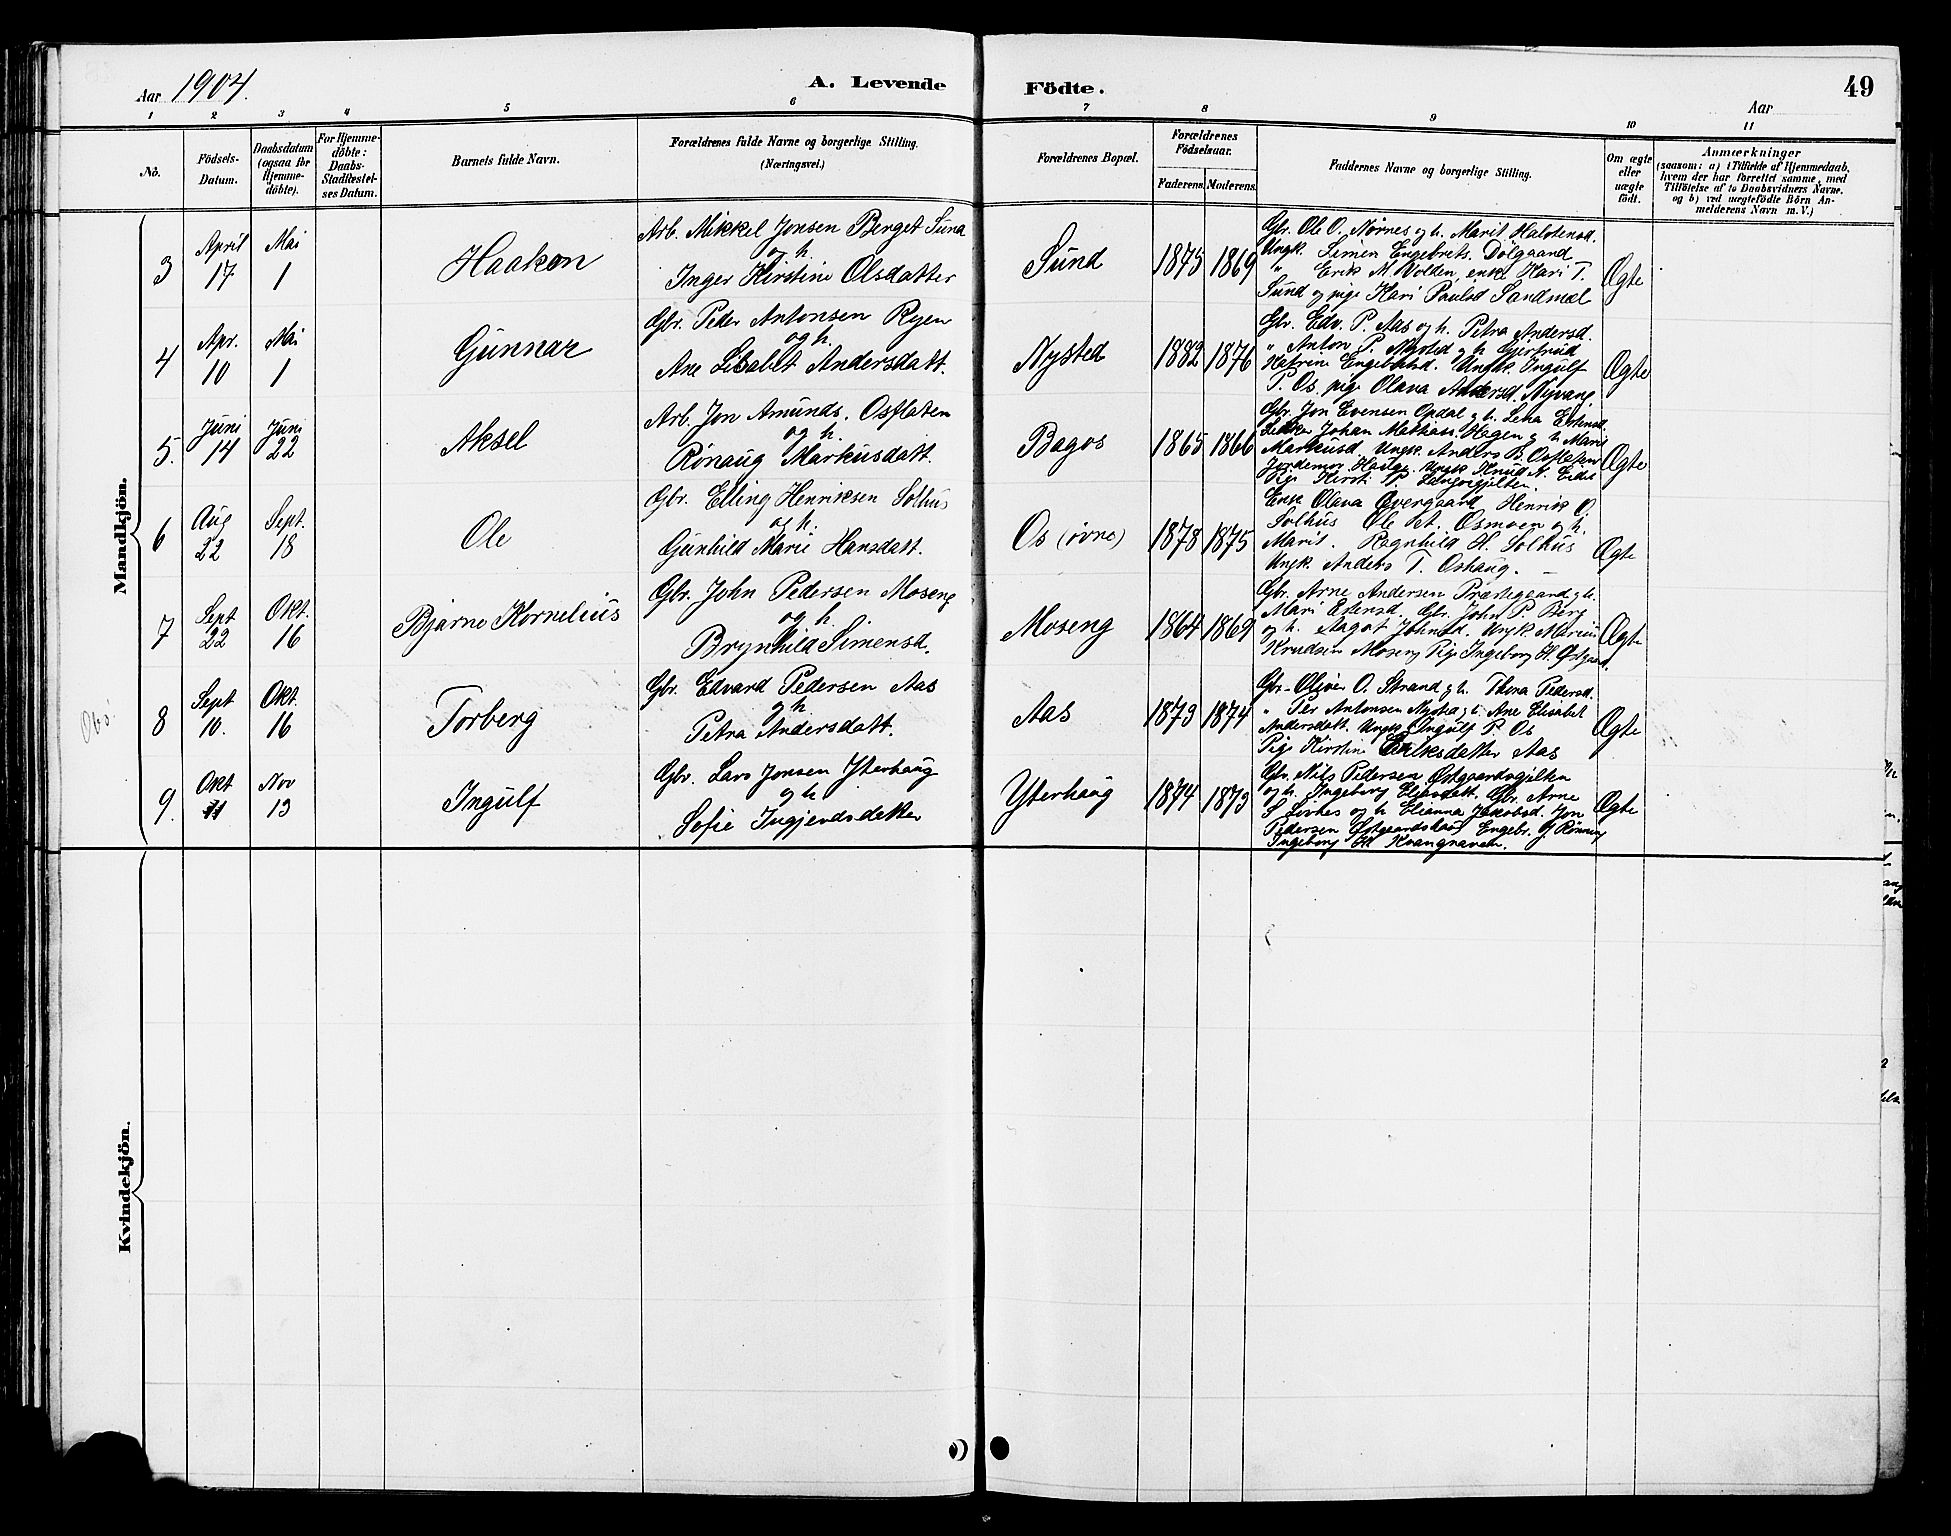 Aar 1904.
A. Levende
Födte.
49
Aar
1 2 3 4 5 6 7 8 9 10 11
No.
Födsels-Datum.
Daabsdatum (ogsaa for Hjemme-döbte).
For Hjemme-döbte: Daabs-Stadfæstel-ses Datum.
Barnets fulde Navn.
Forældrenes fulde Navne og borgerlige Stilling. (Næringsvei.)
Forældrenes Bopæl.
Forældrenes Födselsaar.
Faderens. Moderens.
Faddernes Navne og borgerlige Stilling.
Om ægte eller uægte födt.
Anmærkninger
(saasom: a) i Tilfælde af Hjemmedaab,
hvem der har forrettet samme, med
Tilföielse af to Daabsvidners Navne.
og b) ved uægtefödte Börn An-
melderens Navn m. V.)
Mandkjön.
3
April 17
Mai 1
Haakon
Arb. Mikkel Jonsen Berget Suna
og h.
Inger Kirstine Olsdatter
Sund
1875 1869
Gbr. Ole O. Nørnes og h. Marit Halstensd.
Ungk. Simen Engebrets. Dölgaard
" Erik M. Volden, enke Kari T.
Sund og pige Kari Paulsd Sandmæl
Ægte
4
Apr. 10
Mai 1
Gunnar
Gbr. Peder Antonsen Ryen
og h.
Ane Lisabet Andersdatt.
Nysted
1882 1876
Gbr. Edv. P. Aas og h. Petra Andersd.
" Anton P. Nysted og h. Gjertrud
Katrine Engebretsd. Ungk. Ingulf
P. Os, pige Olava Andersd. Nyvang
Ægte
5.
Juni 14
Juni 22
Aksel
Arb. Jon Amunds. Osfloten
og h.
Rönaug Markusdatt.
Bagos
1865 1866
Gbr. Jon Evensen Opdal og h. Lena Estensd.
Johan Mattiass. Hagen og h. Marit
Markusd. Ungk. Anders B. Osfloten
Jordemor Ungk. Knud N. Eidet
Pige Kirsti P. Langvigjelten
Ægte
6
Aug 22
Sept. 18
Ole
Gbr. Elling Henriksen Solhus
og h.
Gunhild Marie Hansdatt.
Os (øvre)
1878 1875
Enke Olava Overgaard Henrik O.
Solhus Ole A. Osmoen og h.
Marit. Ragnhild H. Solhus
Ungk. Anders T. Oshaug. —
Ægte
7
Sept 22
Okt. 16
Bjarne Kornelius
Gbr. John Pedersen Moseng
og h.
Brynhild Simensd.
Moseng
1864 1869
Gbr. Arne Andersen Præstegaard og h.
Mari Estensd. Gbr. John P. Berg
og h. Aagot Johnsd. Ungk. Marius
Knudsen Moseng Pige Ingeborg H. Østgaard.
Ægte
8
Sept 10.
Okt. 16
Torberg
Gbr. Edvard Pedersen Aas
og h
Petra Andersdatt.
Aas
1873 1874
Gbr. Oliver O. Strand og h. Thina Pedersd.
" Per Antonsen Nysted og h. Ane Elisabet
Andersdatt. Ungk. Ingulf P. Os
Pige Kirstine Eriksdatter Aas
Ægte
9.
Okt 11
Nov 13
Ingulf
Gbr. Lars Jonsen Yterhaug
og h
Sofie Ingjerdsdatter
Yterhaug
1874 1873
Gbr. Nils Pedersen Østgaardsgjelten
og h. Ingeborg Eliasdatt. Gbr. Arne
S Livnes og h Elianna Jakobsd. Jon
Pedersen Østgaardshaug Engebr. J Rönning
Ingeborg H. Kvangraven.
Ægte
Kvindekjön.